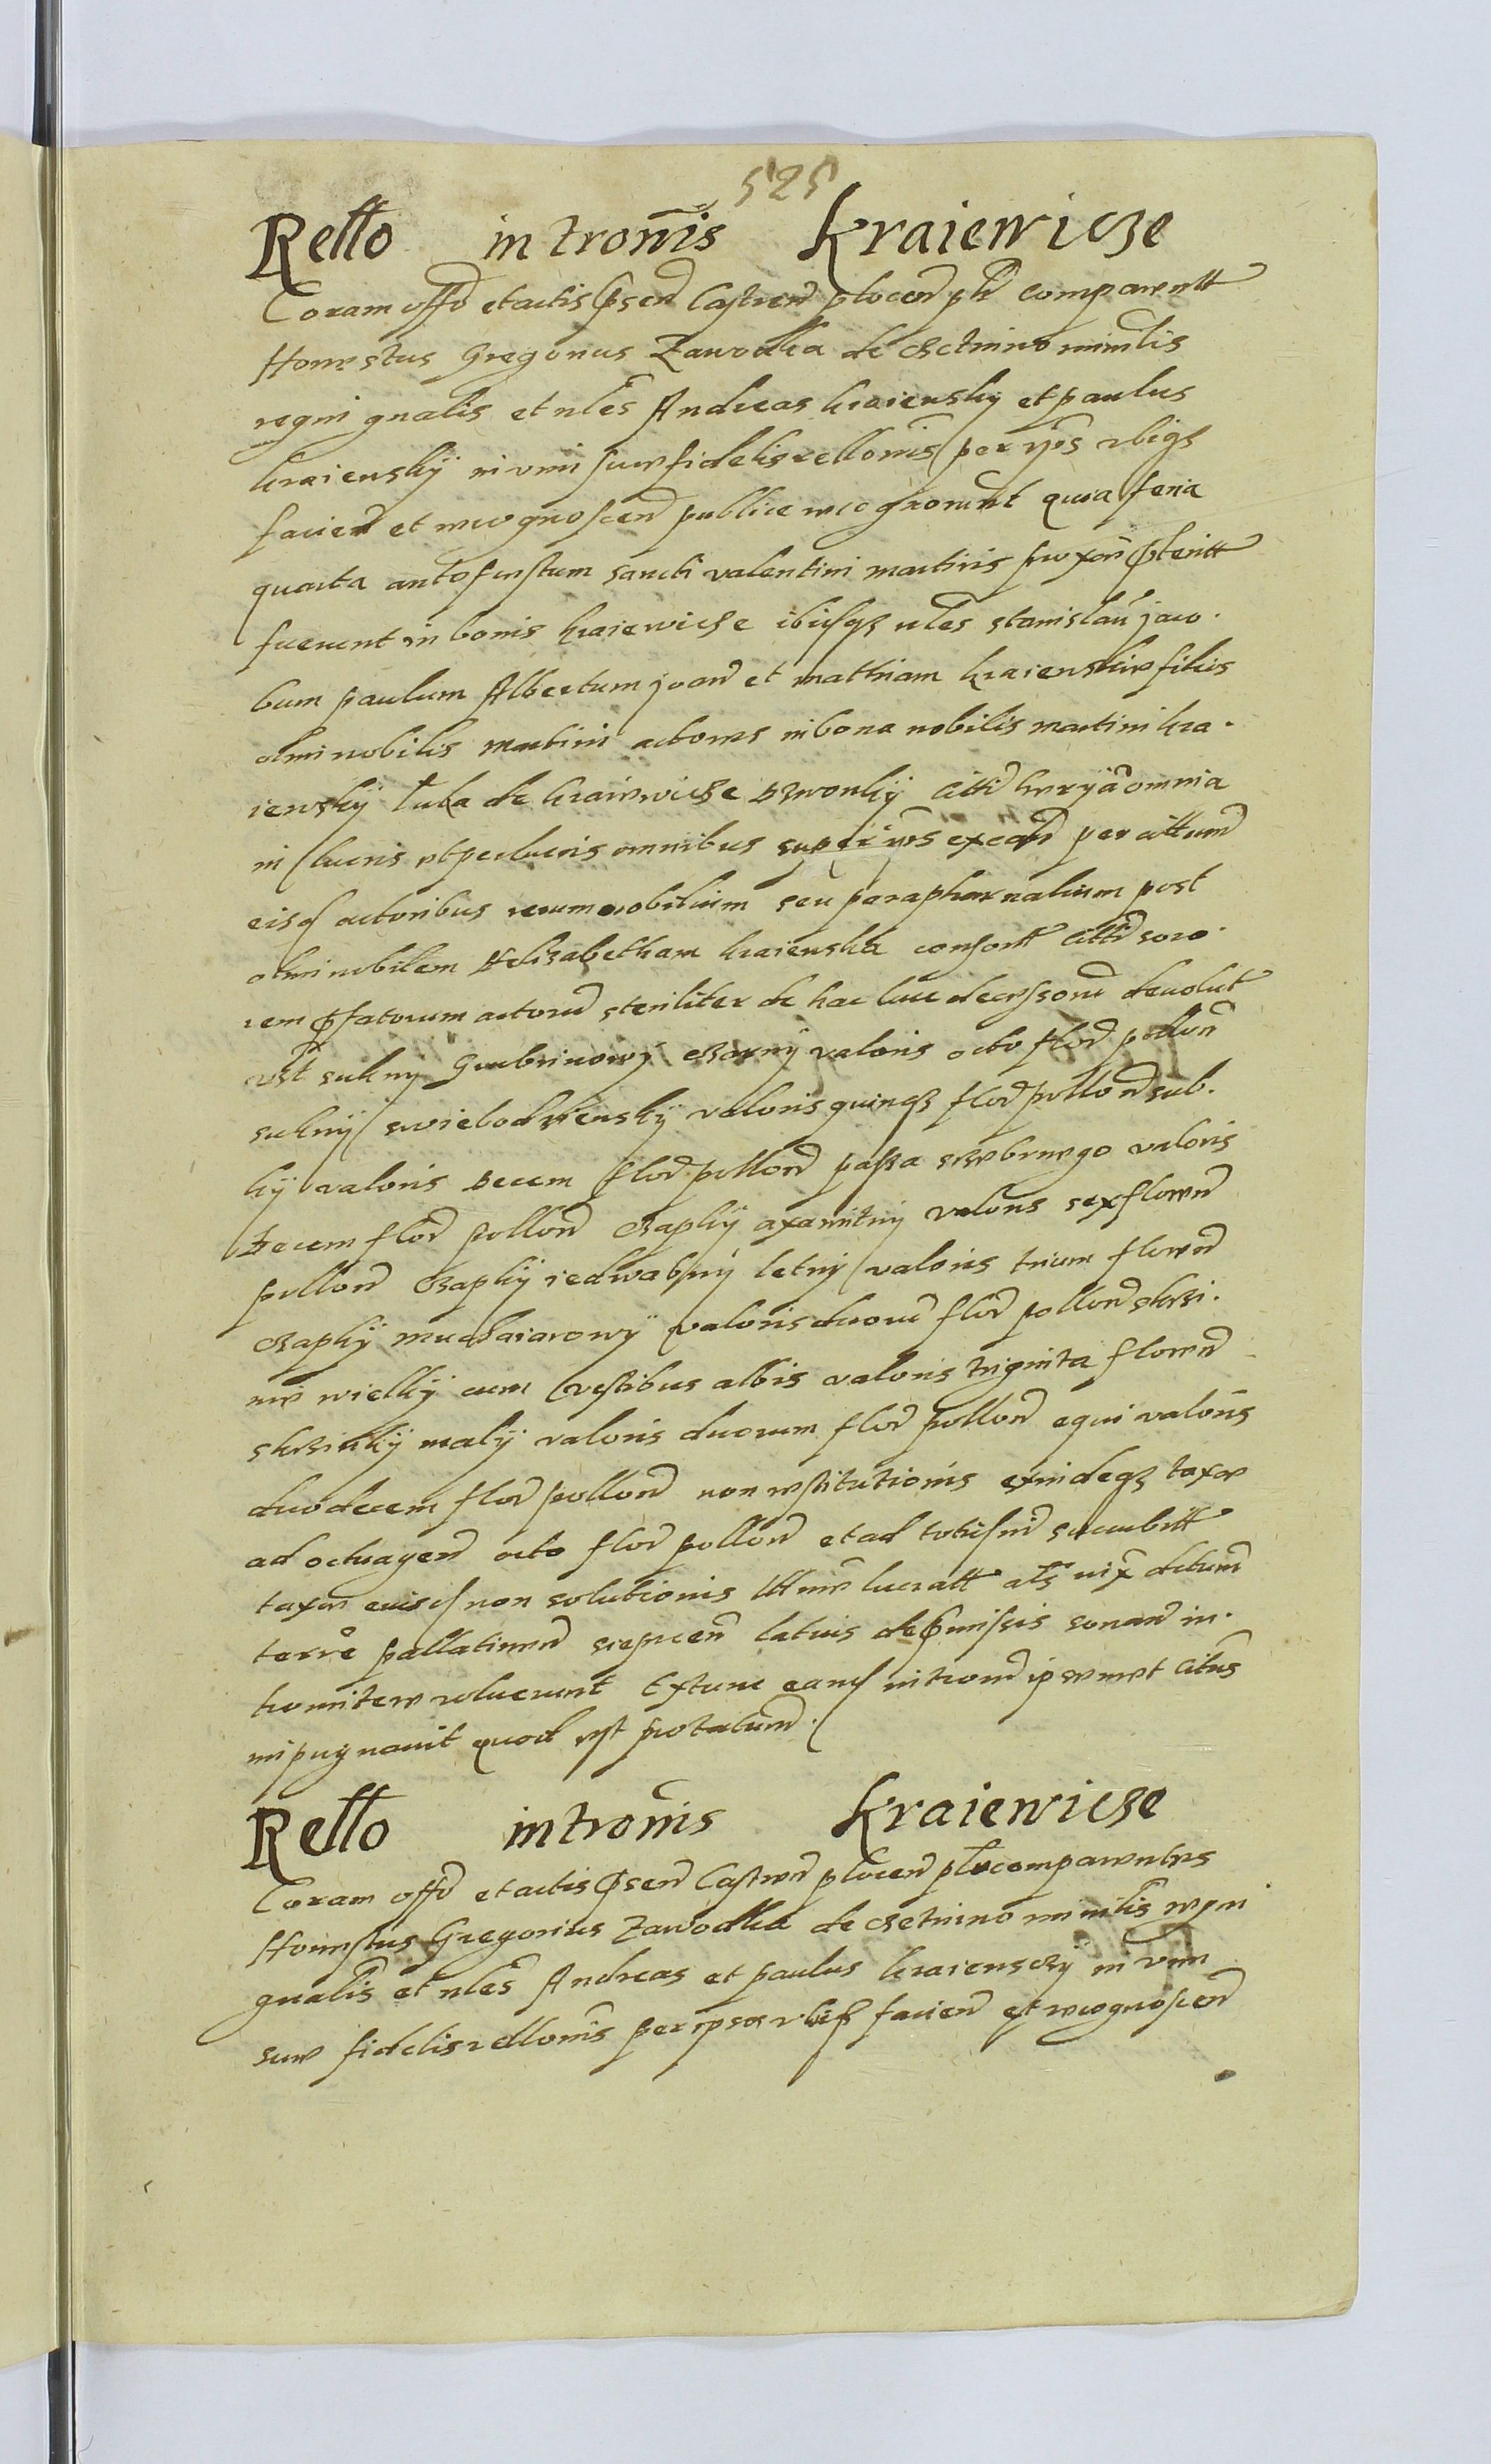 525
Rello intromis Kraiewicze
Coram offo et actis psen Castren plocen plr comparentt
Honestus Gregorius Zawodka de Cetnino minlis
regni gnalis et nles Andreas kraiensky et paulus
kraiensky in vim sue fidelis rellonis per ipsos vbiqz
facien et recognoscen publice recognorunt quia feria
quarta ante festum sancti valentini martiris proxn pteritt
fuerunt in bonis kraiewicze ibiqz nles stanislau jaco.
bum paulum Albertum joan et mathiam kraienskie filios
olim nobilis martini actores in bona nobilis martini kra.
iensky luba de kraiewicze dzwonky citti hereda omnia
in lucris et perlucris omnibus super ipos expectan per cittum
eisd actoribus rerum mobilium seu paraphernalium post
olim nobilem Helizabetham kraienska consortt citti soro.
rem pfatorum actorum steriliter de hac luce decessorum devolut
vst sukny Grubrinowy czarny valoris octo flor pollon
sukny swiebodzensky valoris quinqz flor pollon sub.
ky valoris decem flor pollon passa srebrnego valoris
decem flor pollon czapky axamitny valoris sex floren
pollon czapky iedwabny letny valoris trium floren
czapky muchaiarowy valoris duorum flor pollon skrzi.
nie wielky cum vestibus albis valoris triginta floren
skrzinky maly valoris duorum flor pollon equi valoris
duodecem flor pollon non restitutionis exindeqz taxae
ad octuagen octo flor pollon et ad totiusmd succubitt
taxae euisd non solutionis lucratt als dictum
terre pallatinen siepcen latius de pmissis sonan in.
tromitere voluerunt Extunc eand introm ipsemet citus
inpugnauit quod est protatum.
Rello intromis Kraiewicze
Coram offo et actis psen Castren plocen plr comparentes
Honestus Gregorius Zawodka de Cetnino minlis regni
gnalis et nles Andreas et paulus kraienscy in vim
sue fidelis rellonis per ipsos vbiqz facien et recognoscen